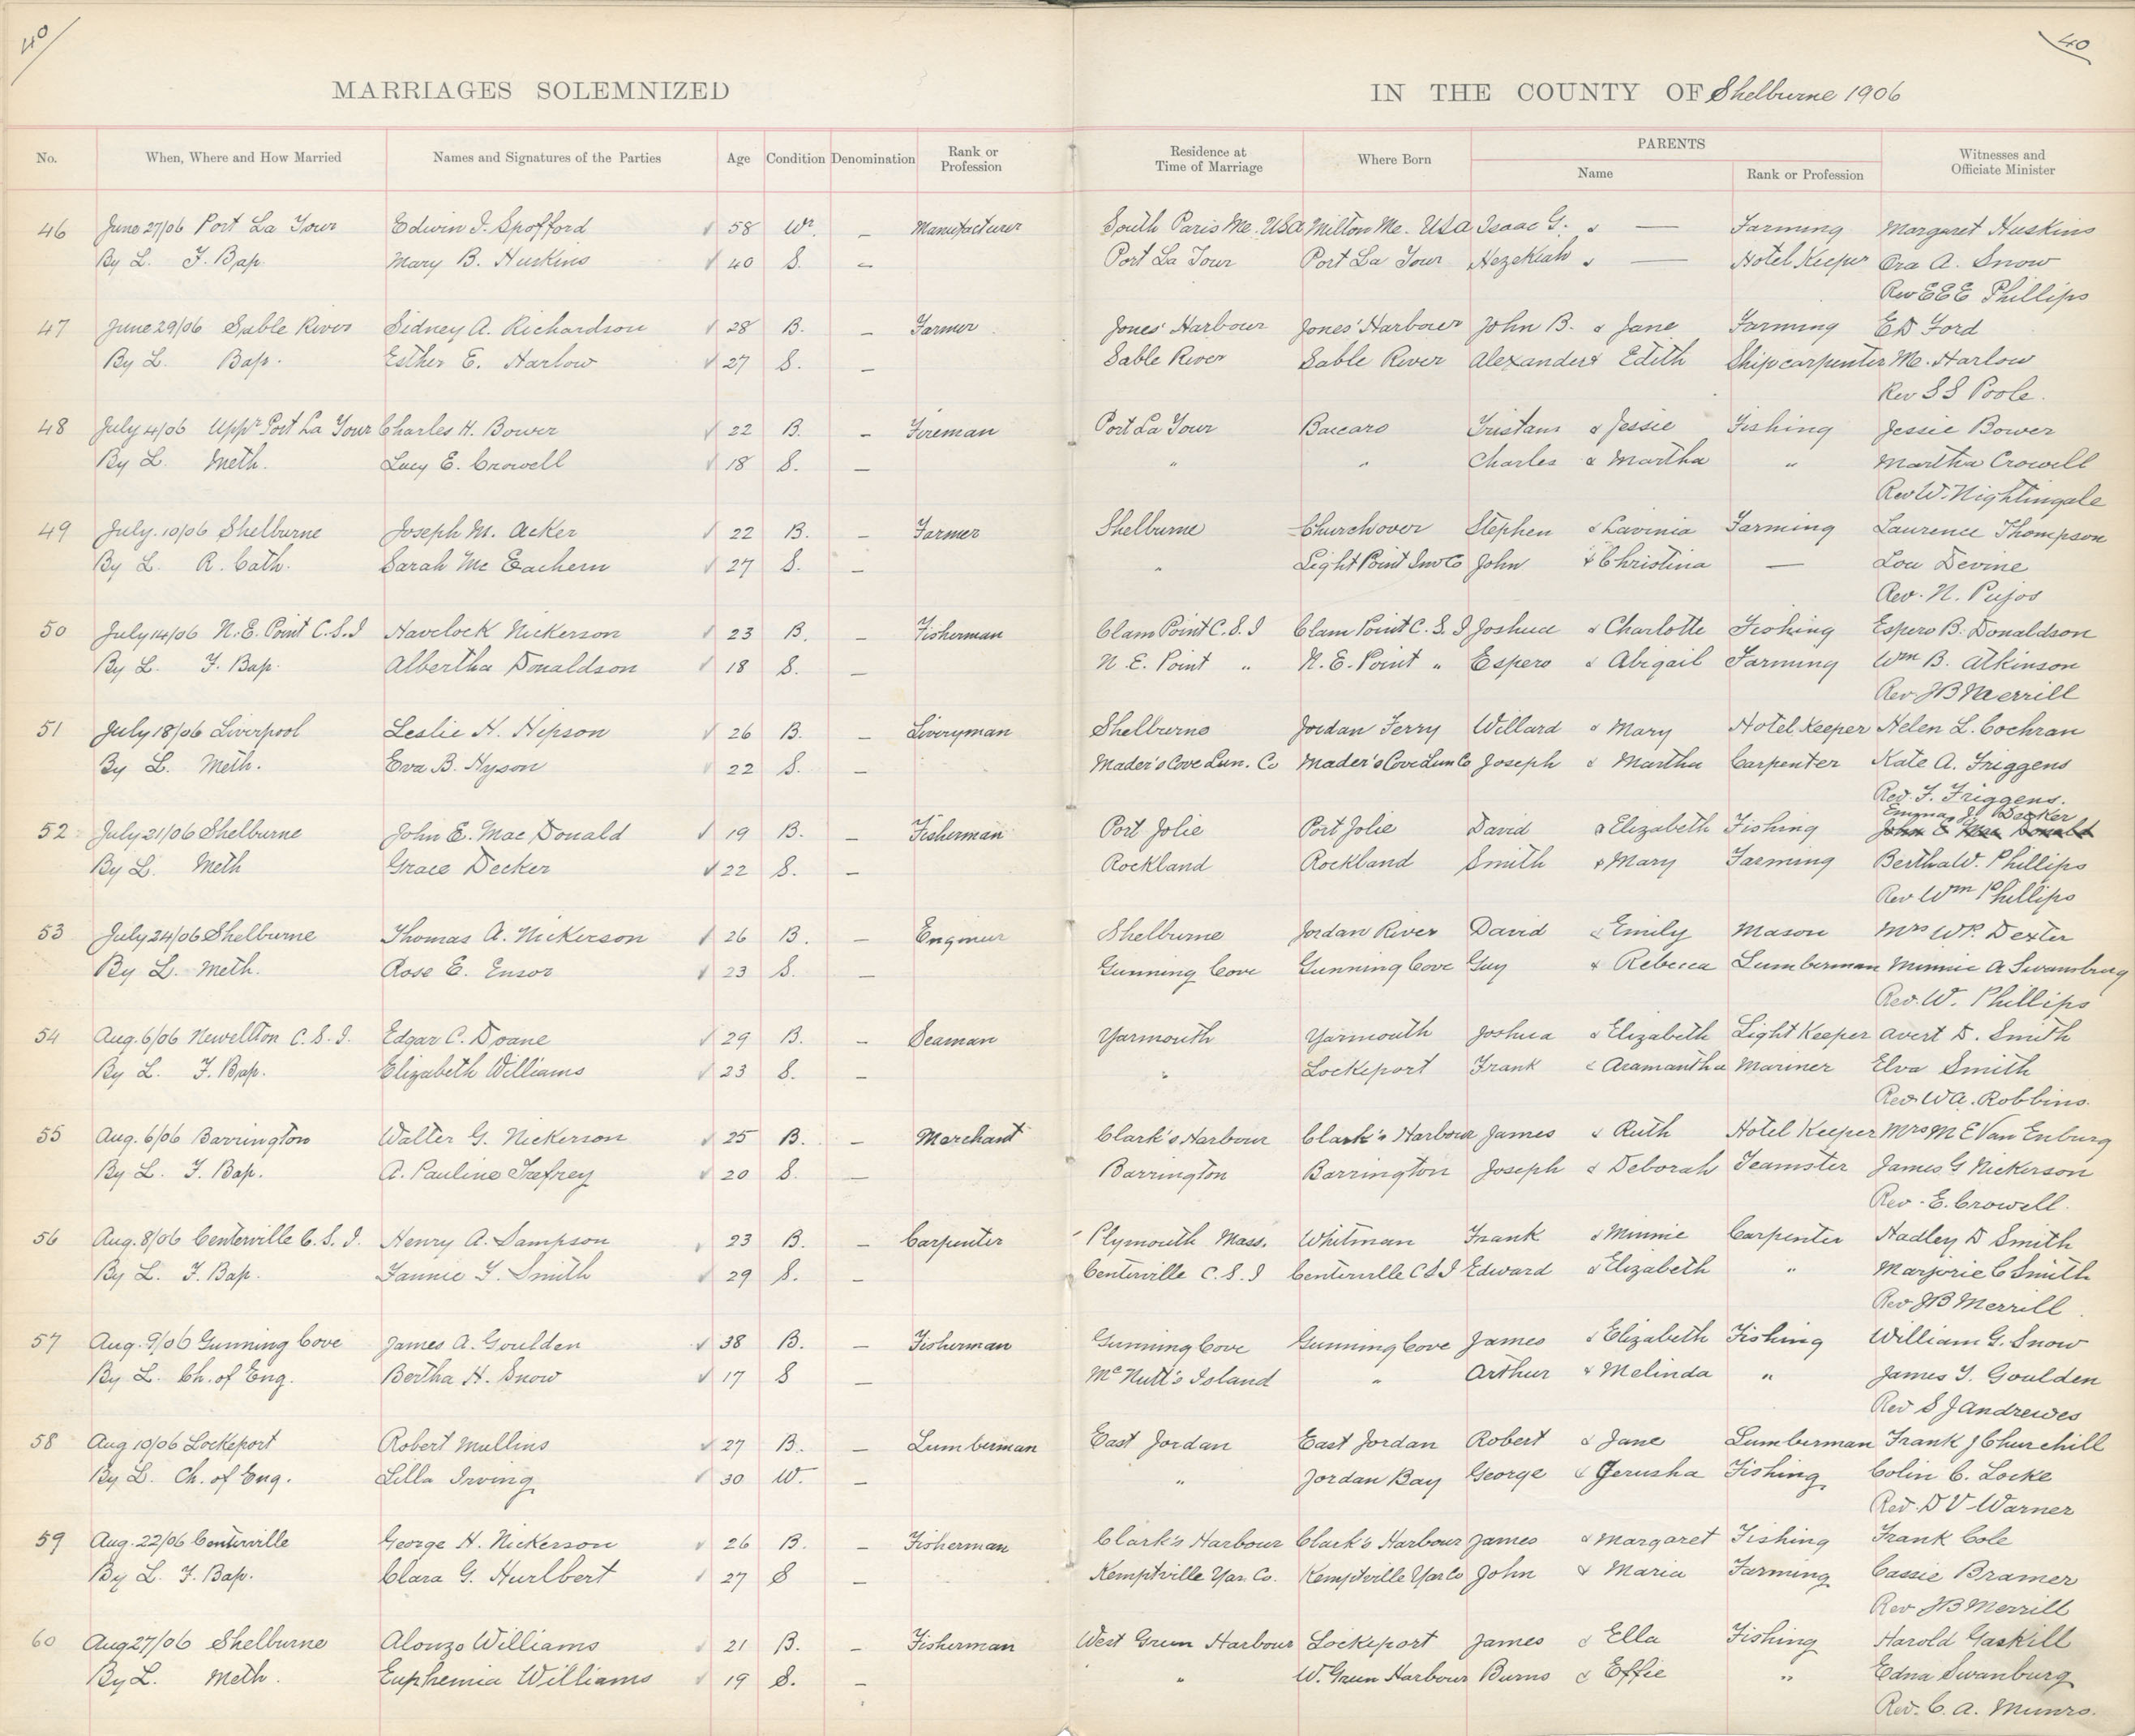 40 40
MARRIAGES SOLEMNIZED IN THE COUNTY OF Shelburne 1906
No. When, Where and How Married Names and Signatures of the Parties Age Condition Denomination Rank or Profession Residence at Time of Marriage Where Born PARENTS Name Rank or Profession Witnesses and Officiate Minister
46 June 27/06 Port La Tour Edwin J. Spofford 58 Wr. – Manufacturer South Paris Me. USA Milton Me. USA Isaac G. & — Farming Margaret Huskins
By L. F. Bap. Mary B. Huskins 40 S. – Port La Tour Port La Tour Hezekiah & — Hotel Keeper Ora A. Snow
Rev EEE Phillips
47 June 29/06 Sable River Sidney A. Richardson 28 B. – Farmer Jones' Harbour Jones' Harbour John B. & Jane Farming E D Ford
By L. Bap. Esther E. Harlow 27 S. – Sable River Sable River Alexander & Edith Ship carpenter Me. Harlow
Rev S S Poole.
48 July 4/06 Uppr Port La Tour Charles H. Bower 22 B. – Fireman Port La Tour Baccaro Tristam & Jessie Fishing Jessie Bower
By L. Meth. Lucy E. Crowell 18 S. – " " Charles & Martha " Martha Crowell
Rev W. Nightingale
49 July. 10/06 Shelburne Joseph M. Acker 22 B. – Farmer Shelburne Churchover Stephen & Lavinia Farming Laurence Thompson
By L. R. Cath. Sarah Mc Eachern 27 S. – " Light Point Inv Co John & Christina — Lou Devine
Rev. N. Pujos
50 July 14/06 N.E. Point C.S.I Havelock Nickerson 23 B. – Fisherman Clam Point C.S.I Clam Point C.S.I Joshua & Charlotte Fishing Espero B. Donaldson
By L. F. Bap. Albertha Donaldson 18 S. – N.E. Point " N.E. Point " Espero & Abigail Farming Wm B. Atkinson
Rev JB Merrill
51 July 18/06 Liverpool Leslie H. Hipson 26 B. – Liveryman Shelburne Jordan Ferry Willard & Mary Hotel Keeper Helen L. Cochran
By L. Meth. Eva B. Hyson 22 S. – Mader's Cove Lun. Co Mader's Cove Lun Co Joseph & Martha Carpenter Kate A. Friggens
Rev. F. Friggens.
Emma J. Decker
52 July 21/06 Shelburne John E. Mac Donald 19 B. – Fisherman Port Jolie Port Jolie David & Elizabeth Fishing John E Mac Donald
By L. Meth Grace Decker 22 S. – Rockland Rockland Smith & Mary Farming Bertha W. Phillips
Rev Wm Phillips
53 July 24/06 Shelburne Thomas A. Nickerson 26 B. – Engineer Shelburne Jordan River David & Emily Mason Mrs WP. Dexter
By L. Meth. Rose E. Ensor 23 S. – Gunning Cove Gunning Cove Guy & Rebecca Lumberman Minnie A Swansburg
Rev. W. Phillips
54 Aug. 6/06 Newellton C.S.I. Edgar C. Doane 29 B. – Seaman Yarmouth Yarmouth Joshua & Elizabeth Light Keeper Avert D. Smith
By L. F. Bap. Elizabeth Williams 23 S. – " Lockeport Frank & Aramantha Mariner Elva Smith
Rev. WA. Robbins.
55 Aug. 6/06 Barrington Walter G. Nickerson 25 B. – Merchant Clark's Harbour Clark's Harbour James & Ruth Hotel Keeper Mrs M E Van Enburg
By L. F. Bap. A. Pauline Trefrey 20 S. – Barrington Barrington Joseph & Deborah Teamster James G Nickerson
Rev. E. Crowell.
56 Aug. 8/06 Centerville C.S.I. Henry A. Sampson 23 B. – Carpenter Plymouth Mass. Whitman Frank & Minnie Carpenter Hadley D Smith
By L. F. Bap. Fannie F. Smith 29 S. – Centerville C.S.I Centerville C S I Edward & Elizabeth " Marjorie C Smith
Rev JB Merrill
57 Aug. 9/06 Gunning Cove James A. Goulden 38 B. – Fisherman Gunning Cove Gunning Cove James & Elizabeth Fishing William G. Snow
By L. Ch. of Eng. Bertha H. Snow 17 S – Mc Nutt's Island " Arthur & Melinda " James Y. Goulden
Rev S J Andrewes
58 Aug 10/06 Lockeport Robert Mullins 27 B. – Lumberman East Jordan East Jordan Robert & Jane Lumberman Frank J Churchill
By L. Ch. of Eng. Lilla Irving 30 W. – " Jordan Bay George & Jerusha Fishing Colin C. Locke
Rev. D V Warner
59 Aug. 22/06 Centerville George H. Nickerson 26 B. – Fisherman Clark's Harbour Clark's Harbour James & Margaret Fishing Frank Cole
By L. F. Bap. Clara G. Hurlbert 27 S – Kemptville Yar. Co. Kemptville Yar Co John & Maria Farming Cassie Bramer
Rev JB Merrill
60 Aug 27/06 Shelburne Alonzo Williams 21 B. – Fisherman West Green Harbour Lockeport James & Ella Fishing Harold Gaskill
By L. Meth. Euphemia Williams 19 S. – " W. Green Harbour Burns & Effie " Edna Swanburg
Rev. C. A. Munro.